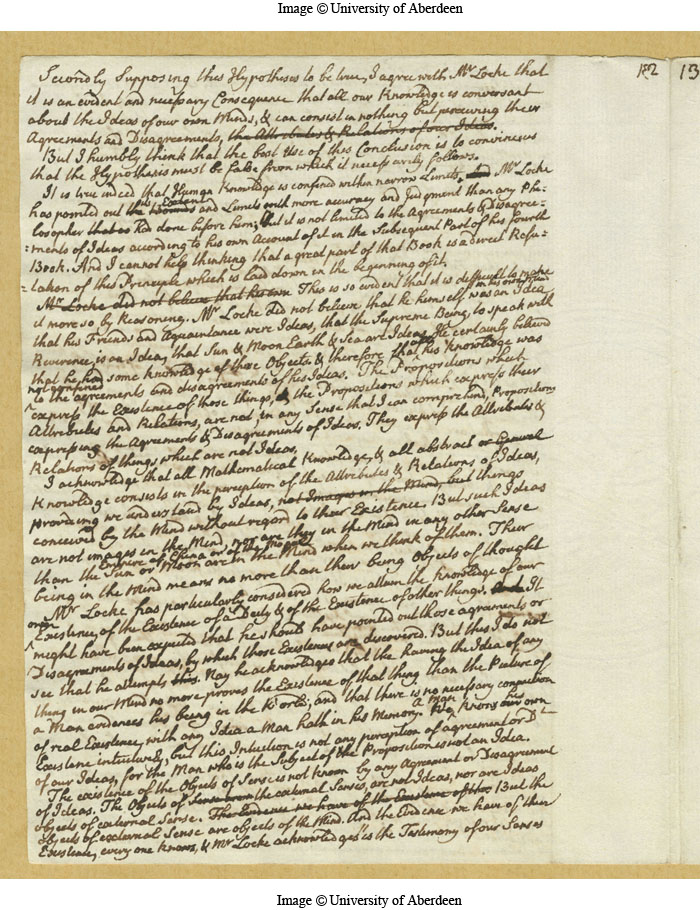 Image © University of Aberdeen
182 13
Secondly Supposing this Hypothesis to be true, I agree with Mr Locke that
it is an evident and necessary Consequence that all our Knowledge is conversant
about the Ideas of our own Minds, & can consist in nothing but perceiving their
Agreements and Disagreements, the Attributes & Relations of our Ideas.
But I humbly think that the best Use of this Conclusion is to convince us
that the Hypothesis must be false from which it necessarily follows.
It is true indeed that Human Knowledge is confined within narrow Limits, and Mr Locke
has pointed out its Extent
the Bounds and Limits with more accuracy and Judgment than any Phi-
losopher that had done before him; But it is not limited to the Agreements & Disagree-
-ments of Ideas according to his own Account of it in the Subsequent Part of his fourth
Book. And I cannot help thinking that a great part of that Book is a direct Refu-
-tation of this Principle which is laid down in the beginning of it.
Mr Locke did not believe that his own This is so evident that it is difficult to make
it more so by Reasoning. Mr Locke did not believe that he himself was an Idea in his own Mind
that his Friends and Aquaintance were Ideas, that the Supreme Being, to speak with
Reverence, is an Idea, that Sun & Moon Earth & Sea are Ideas. He certainly believd
that he had some knowledge of those Objects & therefore that his knowledge was
not confined
to the agreements and disagreements of his Ideas. The Propositions which
express the Existence of those things, & the Propositions which express their
Attributes and Relations, are not, in any Sense that I can comprehend, Propositions
expressing the Agreements & Disagreements of Ideas. They express the Attributes &
Relations of things which are not Ideas.
I acknowledge that all Mathematical Knowledge, & all abstract or General
Knowledge consists in the perception of the Attributes & Relations of Ideas,
providing we understand by Ideas, not Images in the Mind, but things
conceived by the Mind without regard to their Existence. But such Ideas
are not images in the Mind, nor are they in the Mind in any other Sense
than the Empire of China or of the Mogul
Sun or Moon are in the Mind when we think of them. Their
being in the Mind means no more than their being Objects of thought
Mr Locke has particularly considered how we attain the knowledge of our
own
Existence, of the Existence of a Deity & of the Existence of other things. It
might have been expected that he should have pointed out those agreements or
Disagreements of Ideas, by which those Existences are discovered. But this I do not
see that he attempts this. Nay he acknowledges that the Having the Idea of any
thing in our Mind no more proves the Existence of that thing than the Picture of
a Man evidences his being in the World, and that there is no necessary connection
of real Existence, with any Idea a Man hath in his Memory. A Man knows his own
Existence intuitively, but this Intuition is not any perception of agreement or D-
of our Ideas, for the Man who is the Subject of the Proposition is not an Idea.
The existence of the Objects of Sense is not known by any Agreement or Disagreement
of Ideas. The Objects of the external Senses, are not Ideas, nor are Ideas
objects of external Sense. The Evidence we have of the Existence of the But the
Objects of external Sense are objects of the Mind. And the Evidence we have of their
Existence, every one knows, & Mr Locke acknowledges is the Testimony of our Senses
Image © University of Aberdeen